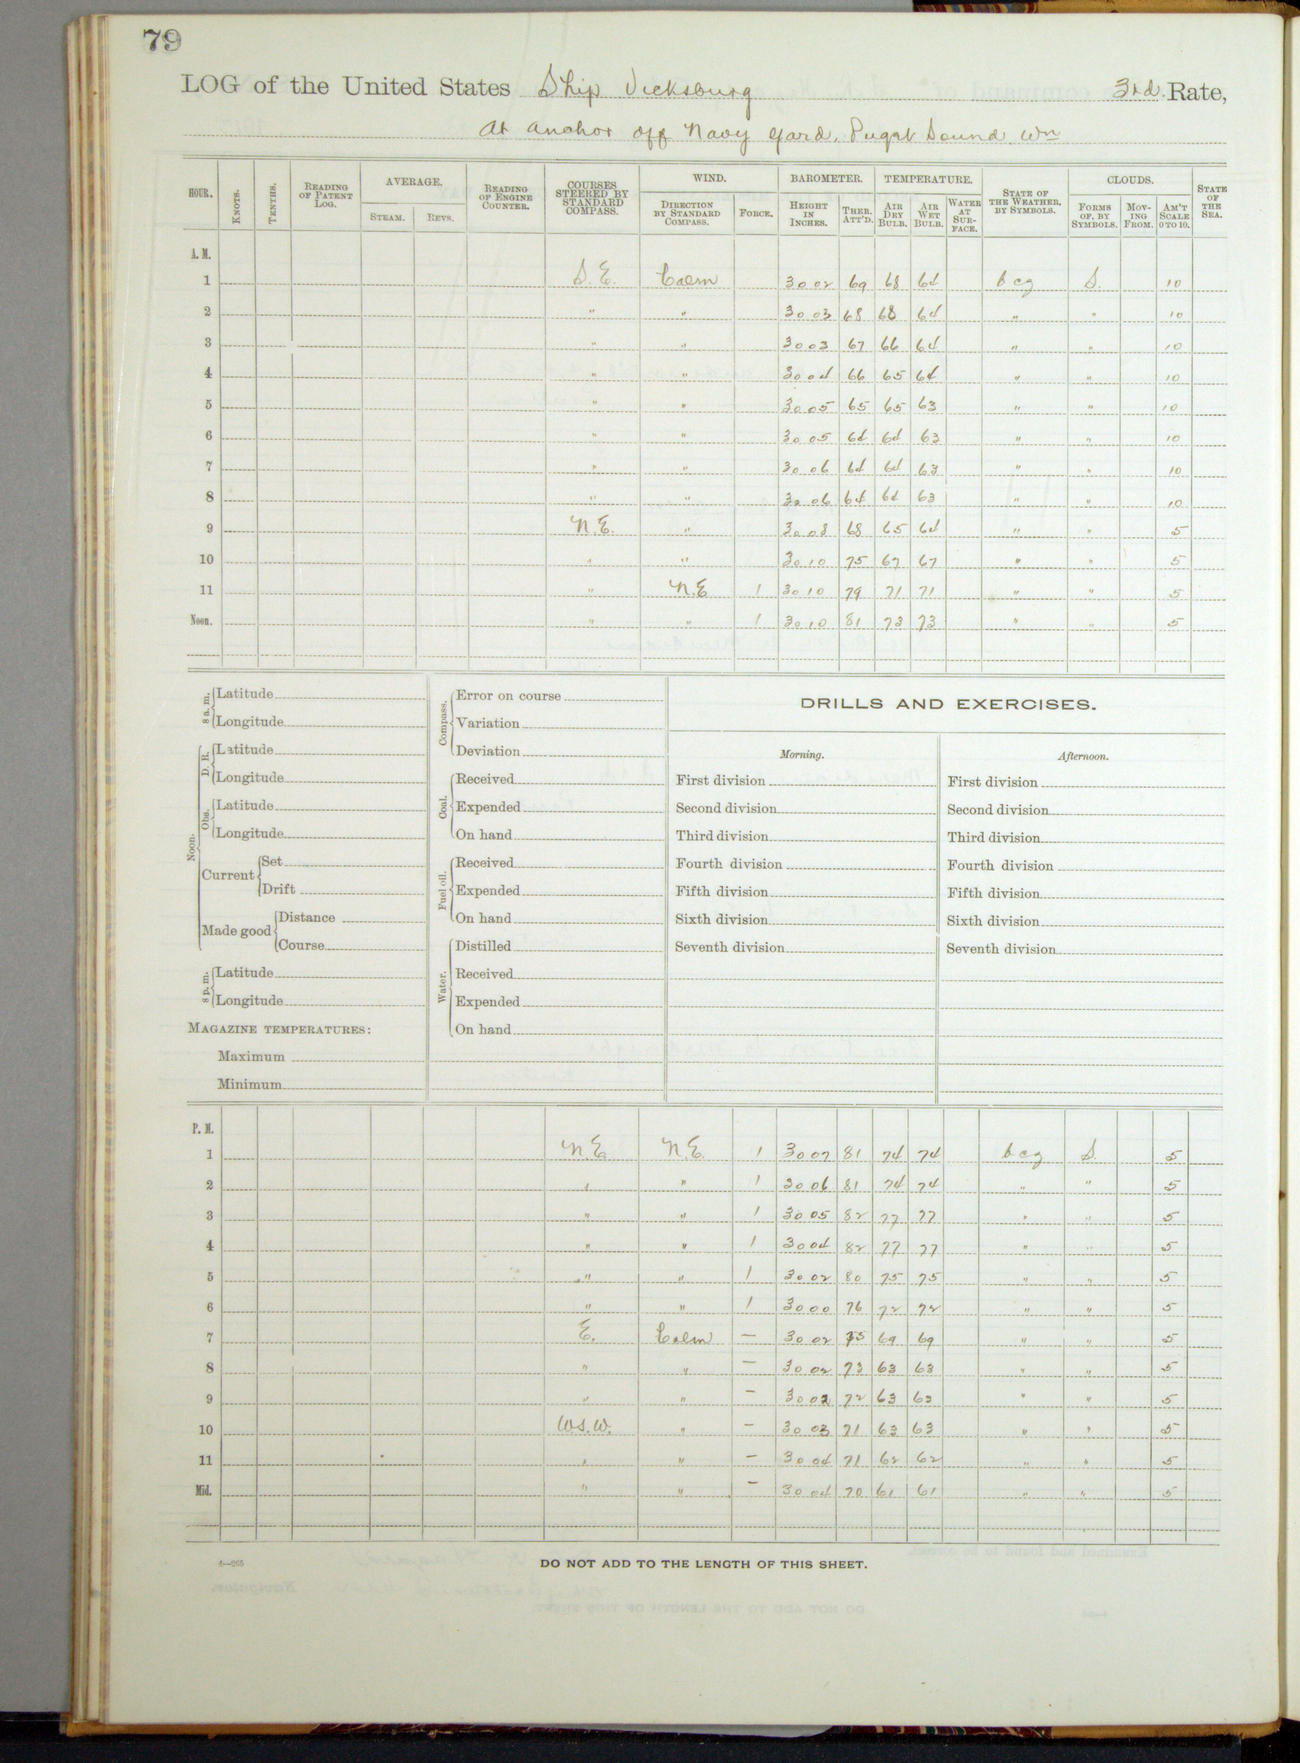 79
LOG of the United States Ship Vicksburg 3rd. Rate,
At anchor off Navy Yard, Puget Sound, Wn
HOUR. KNOTS. TENTHS. READING OF PATENT LOG. AVERAGE. STEAM. REVS. READING OF ENGINE COUNTER. COURSES STEERED BY STANDARD COMPASS. WIND. DIRECTION BY STANDARD COMPASS. FORCE. BAROMETER. HEIGHT IN INCHES. THER. ATT'D. TEMPERATURE. AIR DRY BULB. AIR WET BULB. WATER AT SURFACE. STATE OF THE WEATHER, BY SYMBOLS. CLOUDS. FORMS OF, BY SYMBOLS. MOVING FROM. AM'T SCALE 0 TO 10. STATE OF THE SEA.
A. M.
1 S.E. Calm 30 02 69 68 64 bcg S. 10
2 " " 30 03 68 68 64 " " 10
3 " " 30 03 67 66 64 " " 10
4 " " 30 04 66 65 64 " " 10
5 " " 30 05 65 65 63 " " 10
6 " " 30 05 64 64 63 " " 10
7 " " 30 06 64 64 63 " " 10
8 " " 30 06 64 64 63 " " 10
9 N.E. " 30 08 68 65 64 " " 5
10 " " 30 10 75 67 67 " " 5
11 " N.E 1 30 10 79 71 71 " " 5
Noon. " " 1 30 10 81 73 73 " " 5
8 a. m. Latitude
Longitude
Noon. D. R. Latitude
Longitude
Obs. Latitude
Longitude
Current Set
Drift
Made good Distance
Course
8 p. m. Latitude
Longitude
MAGAZINE TEMPERATURES:
Maximum
Minimum
Compass. Error on course
Variation
Deviation
Coal. Received
Expended
On hand
Fuel oil. Received
Expended
On hand
Water. Distilled
Received
Expended
On hand
DRILLS AND EXERCISES.
Morning.
First division
Second division
Third division
Fourth division
Fifth division
Sixth division
Seventh division
Afternoon.
First division
Second division
Third division
Fourth division
Fifth division
Sixth division
Seventh division
P. M.
1 N.E. N.E. 1 30 07 81 74 74 bcg S. 5
2 " " 1 30 06 81 74 74 " " 5
3 " " 1 30 05 82 77 77 " " 5
4 " " 1 30 04 82 77 77 " " 5
5 " " 1 30 02 80 75 75 " " 5
6 " " 1 30 00 76 72 72 " " 5
7 E. Calm — 30 02 75 69 69 " " 5
8 " " — 30 02 73 63 63 " " 5
9 " " — 30 02 72 63 63 " " 5
10 W.S.W. " — 30 03 71 63 63 " " 5
11 " " — 30 04 71 62 62 " " 5
Mid. " " — 30 04 70 61 61 " " 5
4—265
DO NOT ADD TO THE LENGTH OF THIS SHEET.